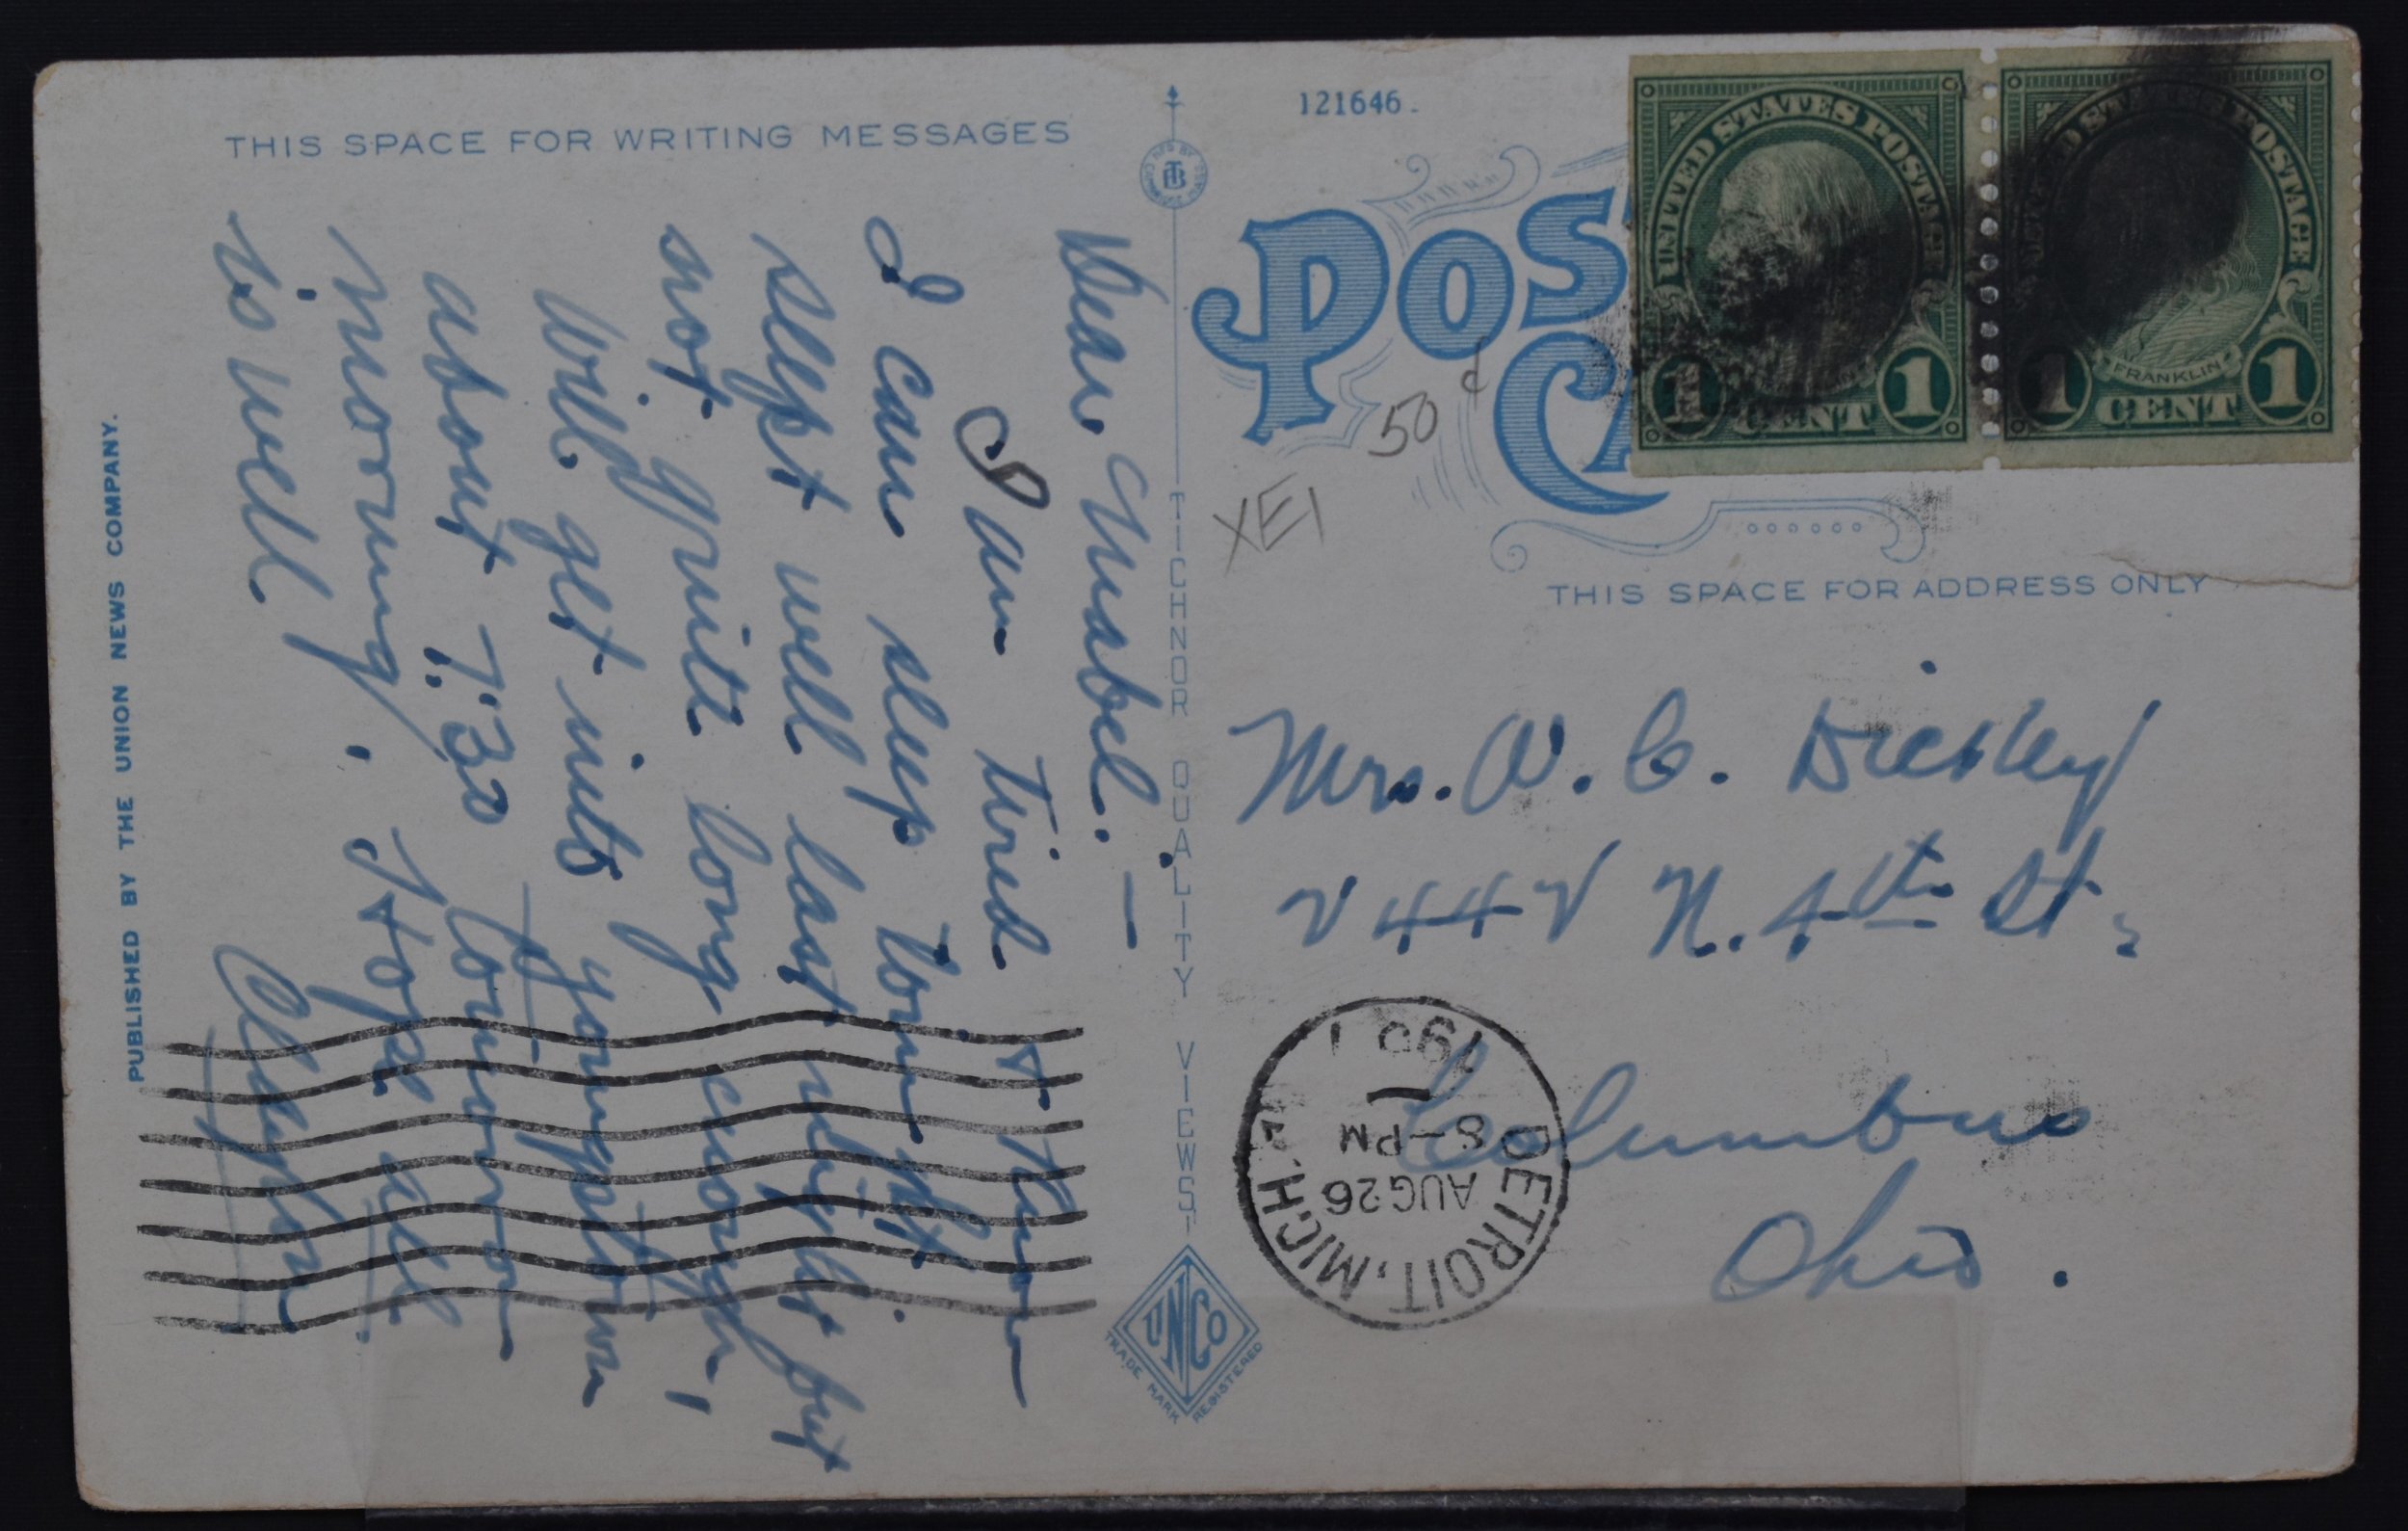 THIS SPACE FOR WRITING MESSAGES
Dear Mabel. —
I am tired & know
I can sleep tonight.
slept well last night but
not quite long enough,
Will get into Youngstown
about 7:30 tomorrow
morning. Hope all
is well
Clayton
PUBLISHED BY THE UNION NEWS COMPANY.
MFG BY
CTB
TICHNOR QUALITY VIEWS
UNCO
TRADE MARK REGISTERED
121646.
POS
CA
50¢
XEI
UNITED STATES POSTAGE
1 CENT 1
UNITED STATES POSTAGE
FRANKLIN
1 CENT 1
THIS SPACE FOR ADDRESS ONLY
Mrs. W. C.
2442 N. 4th St.
Columbus
Ohio.
DETROIT, MICH
AUG 26
8—PM